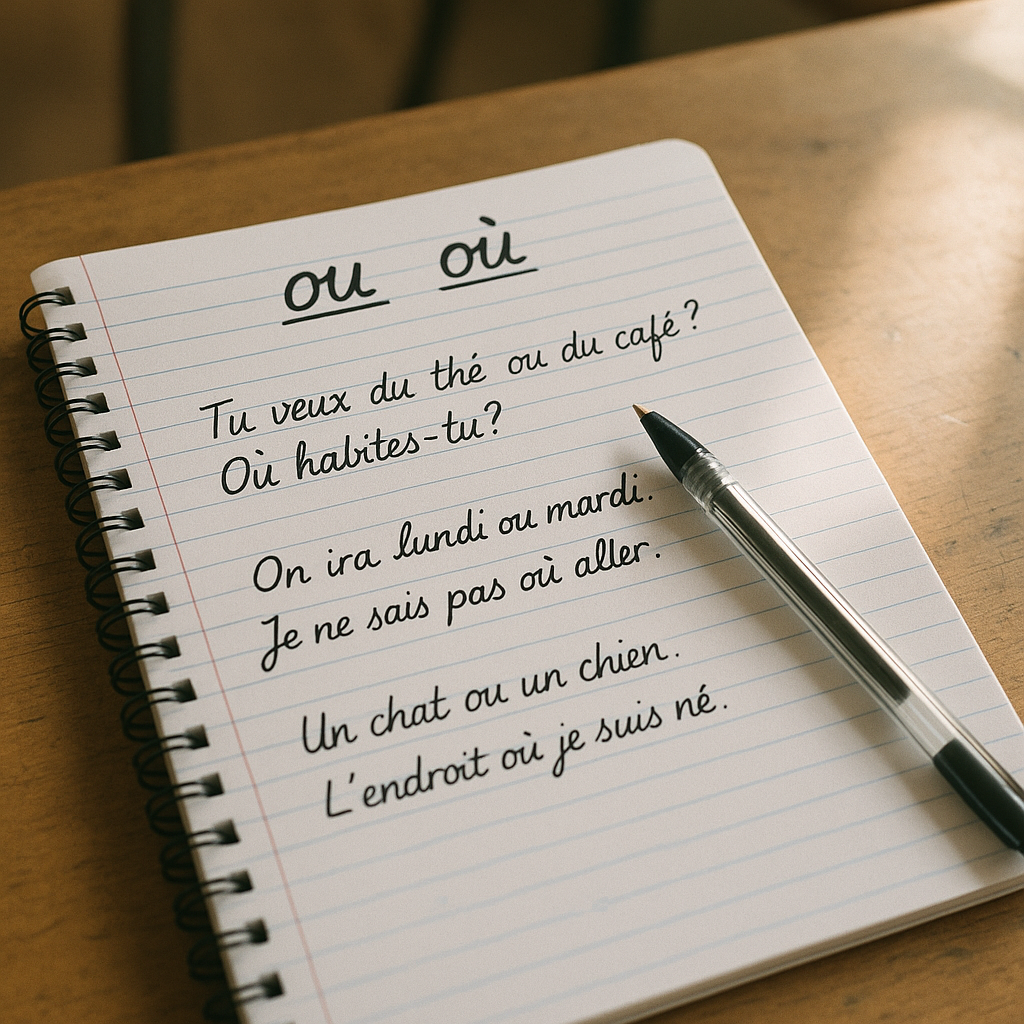 ou où
Tu veux du thé ou du café ?
Où habites-tu ?
On ira lundi ou mardi.
Je ne sais pas où aller.
Un chat ou un chien.
L'endroit où je suis né.